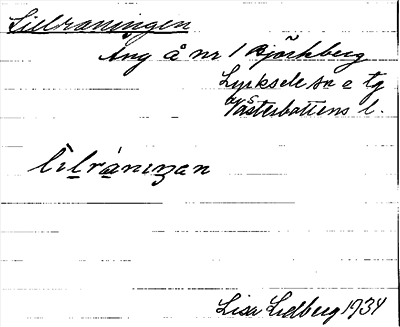 Lillraningen
Äng å nr 1 Björkberg
Lycksele sn o tg
Västerbottens l.
lìlrànıŋan
Lisa Lidberg 1934